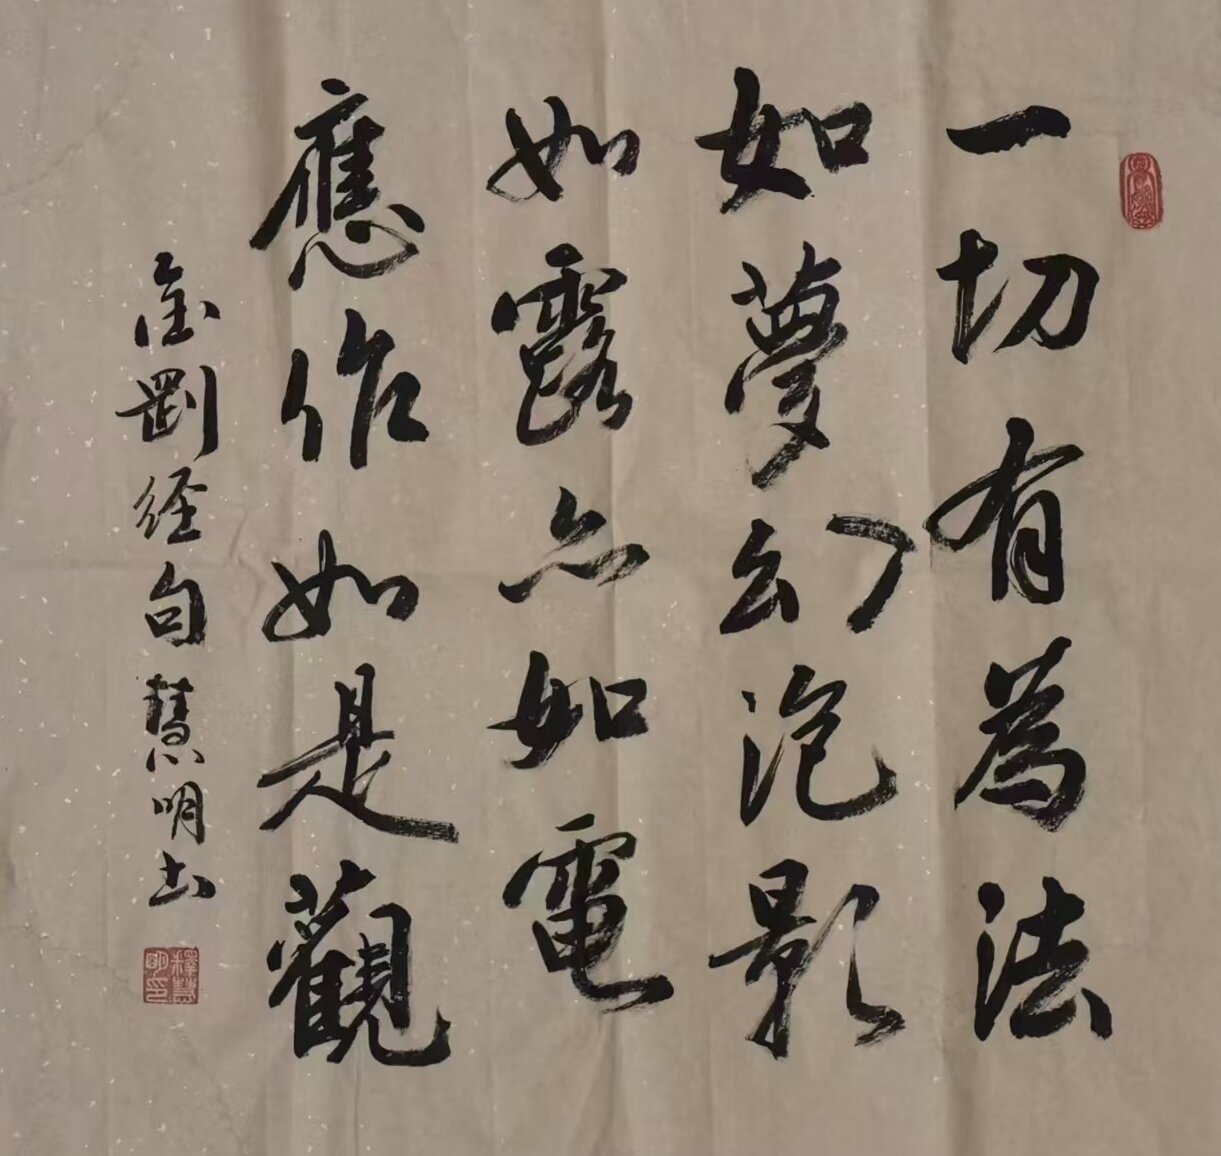 一切有為法
如夢幻泡影
如露亦如電
應作如是觀
金剛经句慧明书
釋慧明印